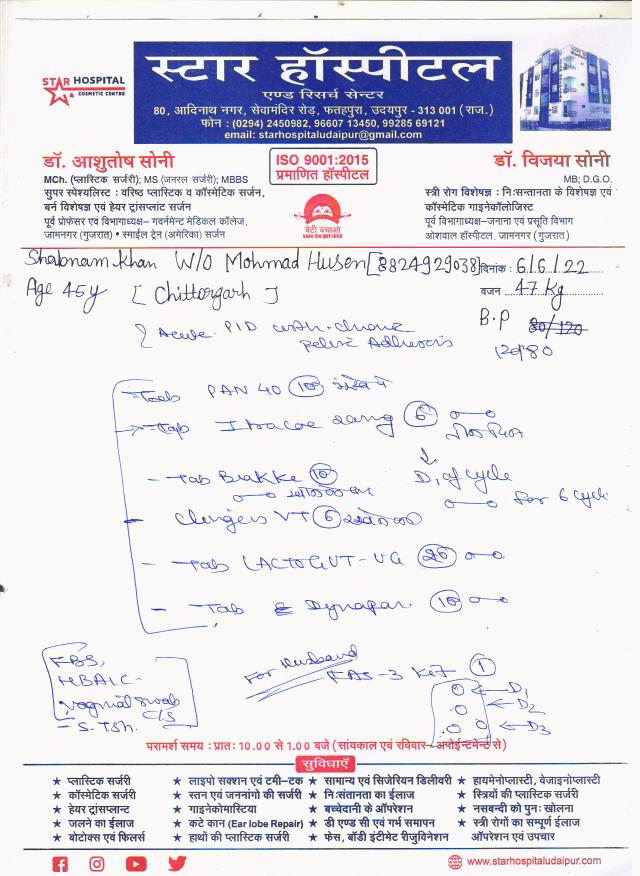 STAR HOSPITAL
COSMETIC CENTRE
स्टार हॉस्पीटल
एण्ड रिसर्च सेन्टर
80, आदिनाथ नगर, सेवामंदिर रोड़, फतहपुरा, उदयपुर - 313 001 (राज.)
फोन : (0294) 2450982, 96607 13450, 99285 69121
email: starhospitaludaipur@gmail.com
डॉ. आशुतोष सोनी
MCh. (प्लास्टिक सर्जरी); MS (जनरल सर्जरी); MBBS
सुपर स्पेश्यलिस्ट : वरिष्ठ प्लास्टिक व कॉस्मेटिक सर्जन,
बर्न विशेषज्ञ एवं हेयर ट्रांसप्लांट सर्जन
पूर्व प्रोफेसर एवं विभागाध्यक्ष– गवर्नमेन्ट मेडिकल कॉलेज,
जामनगर (गुजरात) • स्माईल ट्रेन (अमेरिका) सर्जन
ISO 9001:2015
प्रमाणित हॉस्पीटल
बेटी बचाओ
save the girl child
डॉ. विजया सोनी
MB; D.G.O.
स्त्री रोग विशेषज्ञ : निःसन्तानता के विशेषज्ञ एवं
कॉस्मेटिक गाइनेकॉलोजिस्ट
पूर्व विभागाध्यक्ष–जनाना एवं प्रसूति विभाग
ओशवाल हॉस्पीटल, जामनगर (गुजरात)
Shabnam Khan W/O Mohmad Husen [8824929038] दिनांक : 6/6/22
Age 45y [Chittorgarh] वजन 47 Kg
B.P 80/120
120/80
Acute PID with chronic
pelvic Adhesions
Tab PAN 40 (10)
Tab (6)
Tab (10) D1 of cycle
for 6 cycle
VT (6)
Tab LACTOGUT-VG
Tab Dynapar (10)
FBS,
HBA1C
Vaginal swab
C/S
S.TSh.
For Husband
FAS-3 Kit (1)
D1
D2
D3
परामर्श समय : प्रातः 10.00 से 1.00 बजे (सायंकाल एवं रविवार – अपोईन्टमेन्ट से)
सुविधाएँ
★ प्लास्टिक सर्जरी ★ लाइपो सक्शन एवं टमी–टक ★ सामान्य एवं सिजेरियन डिलीवरी ★ हायमेनोप्लास्टी, वेजाइनोप्लास्टी
★ कॉस्मेटिक सर्जरी ★ स्तन एवं जननांगो की सर्जरी ★ निःसंतानता का ईलाज ★ स्त्रियों की प्लास्टिक सर्जरी
★ हेयर ट्रांसप्लान्ट ★ गाइनेकोमास्टिया ★ बच्चेदानी के ऑपरेशन ★ नसबन्दी को पुनः खोलना
★ जलने का ईलाज ★ कटे कान (Ear lobe Repair) ★ डी एण्ड सी एवं गर्भ समापन ★ स्त्री रोगों का सम्पूर्ण ईलाज
★ बोटोक्स एवं फिलर्स ★ हाथों की प्लास्टिक सर्जरी ★ फेस, बॉडी इंटीमेट रीजुविनेशन ऑपरेशन एवं उपचार
www.starhospitaludaipur.com